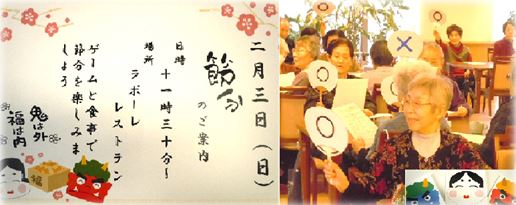 二月三日(日)
節分
のご案内
日時 十一時三十分〜
場所 ラポーレ
レストラン
ゲームと食事で
節分を楽しみま
しょう
鬼は外
福は内
福